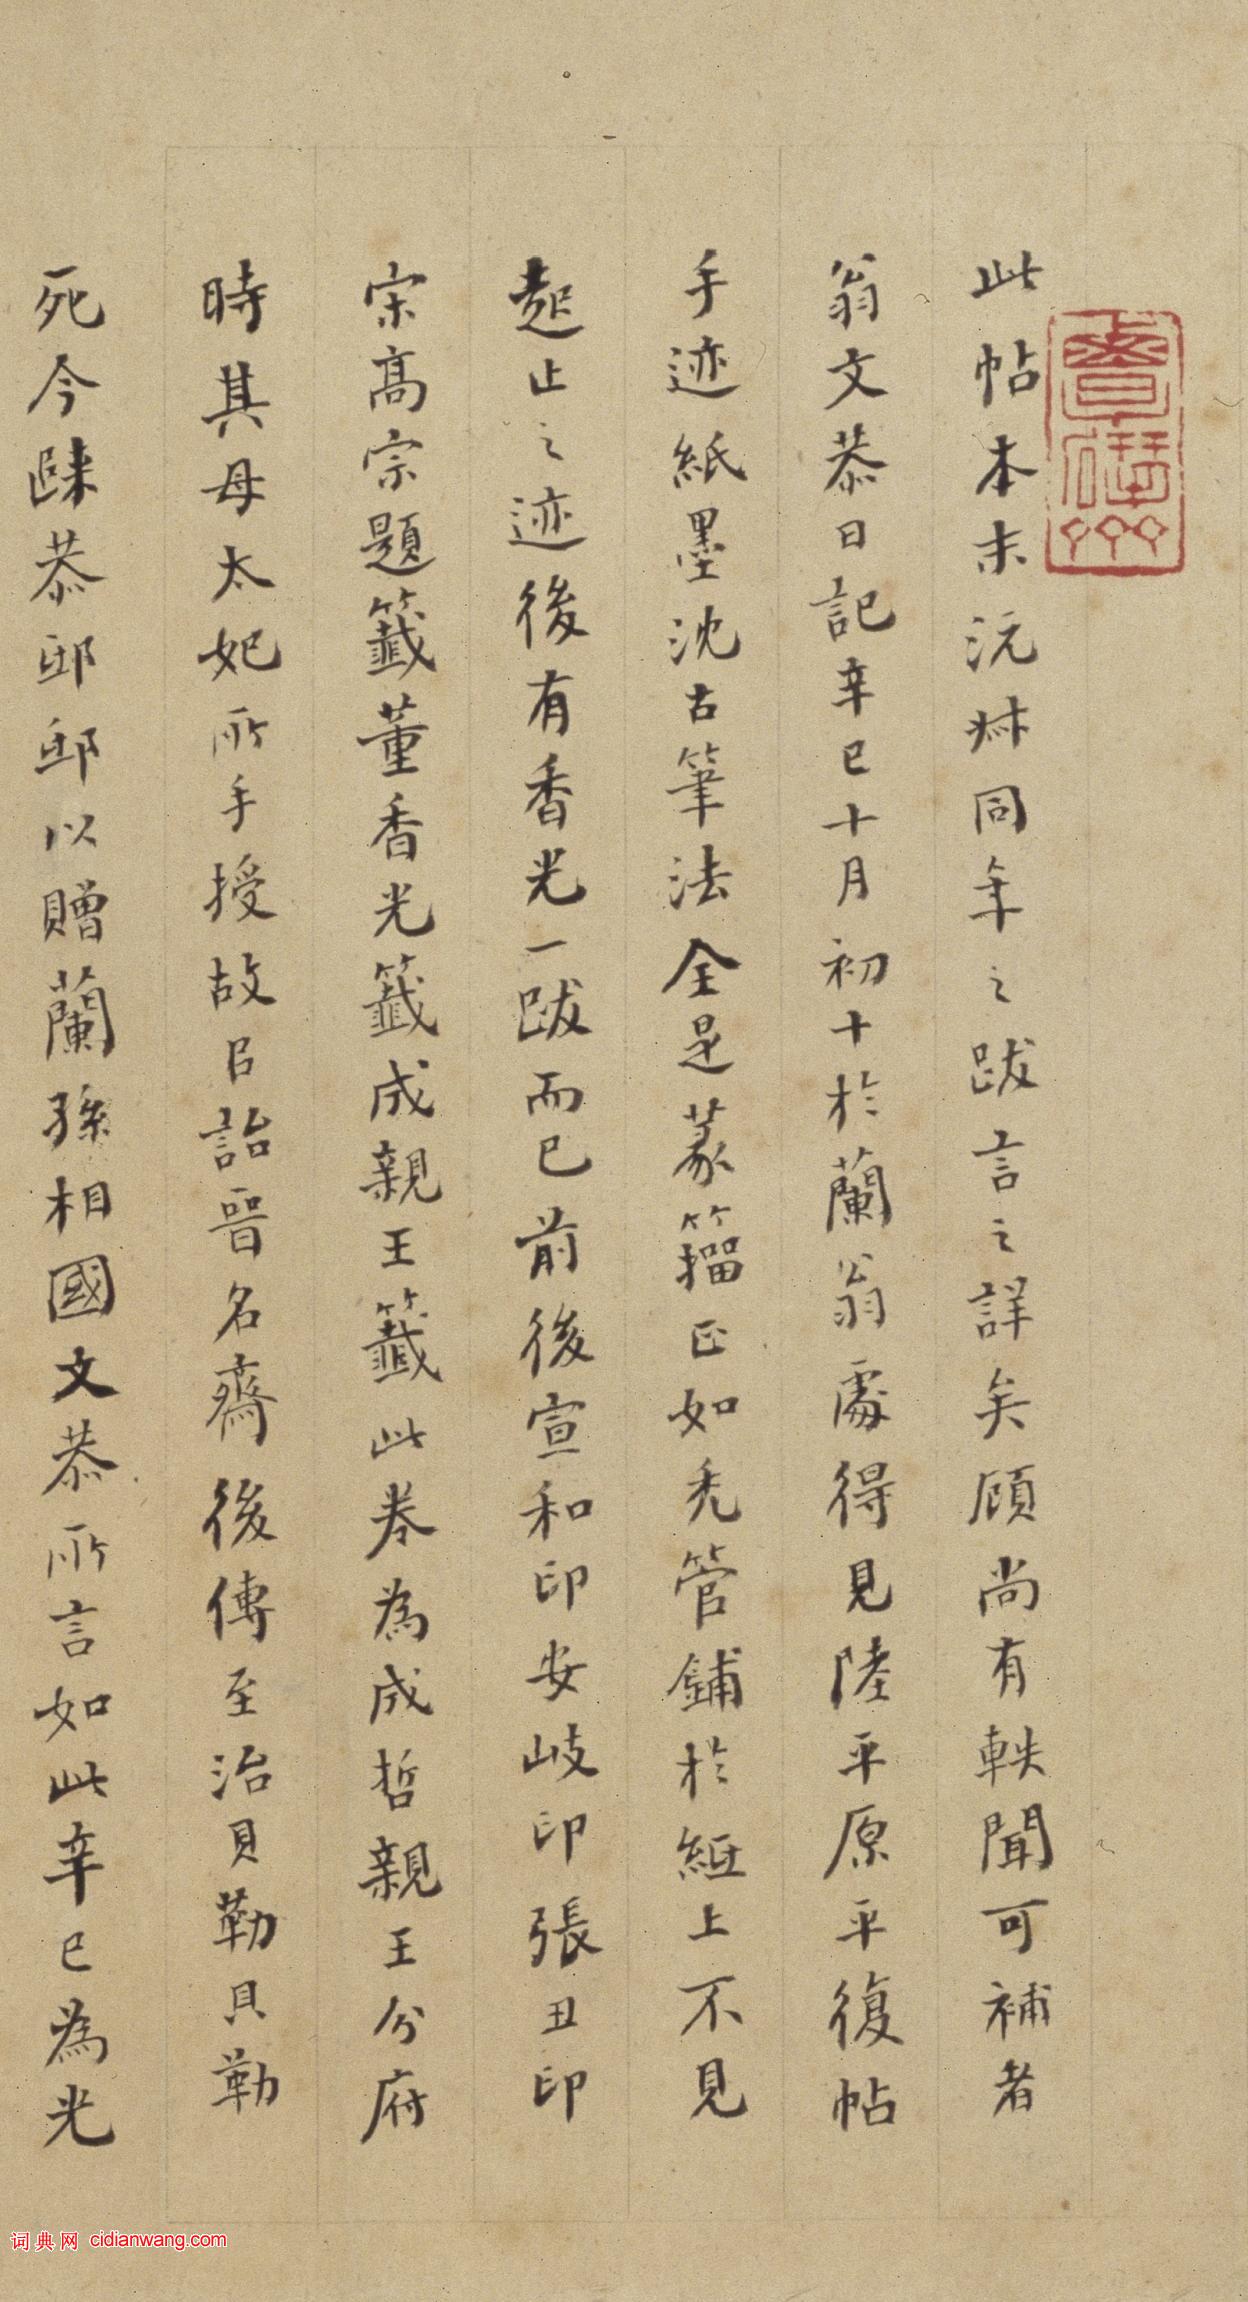 此帖本末沅叔同年之跋言之詳矣顧尚有軼聞可補者
翁文恭日記辛巳十月初十於蘭翁處得見陸平原平復帖
手迹紙墨沈古筆法全是篆籀正如禿管鋪於紙上不見
起止之迹後有香光一跋而已前後宣和印安岐印張丑印
宋高宗題籤董香光籤成親王籤此卷為成哲親王分府
時其母太妃所手授故㠯詒晉名齋後傳至治貝勒貝勒
死今歸恭邸邸以贈蘭孫相國文恭所言如此辛巳為光
词典网 cidianwang.com